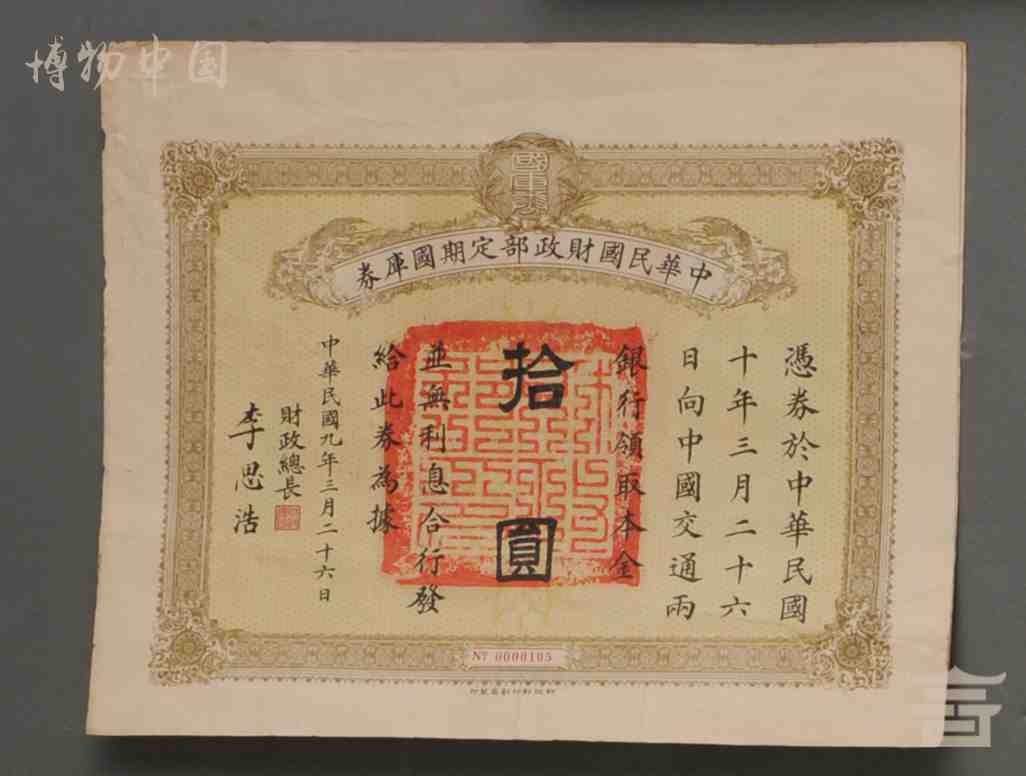 博物中国
國庫券
中華民國財政部定期國庫券
憑券於中華民國
十年三月二十六
日向中國交通兩
銀行領取本金
拾圓
並無利息合行發
給此券為據
中華民國九年三月二十六日
財政總長
李思浩
Nº 0000105